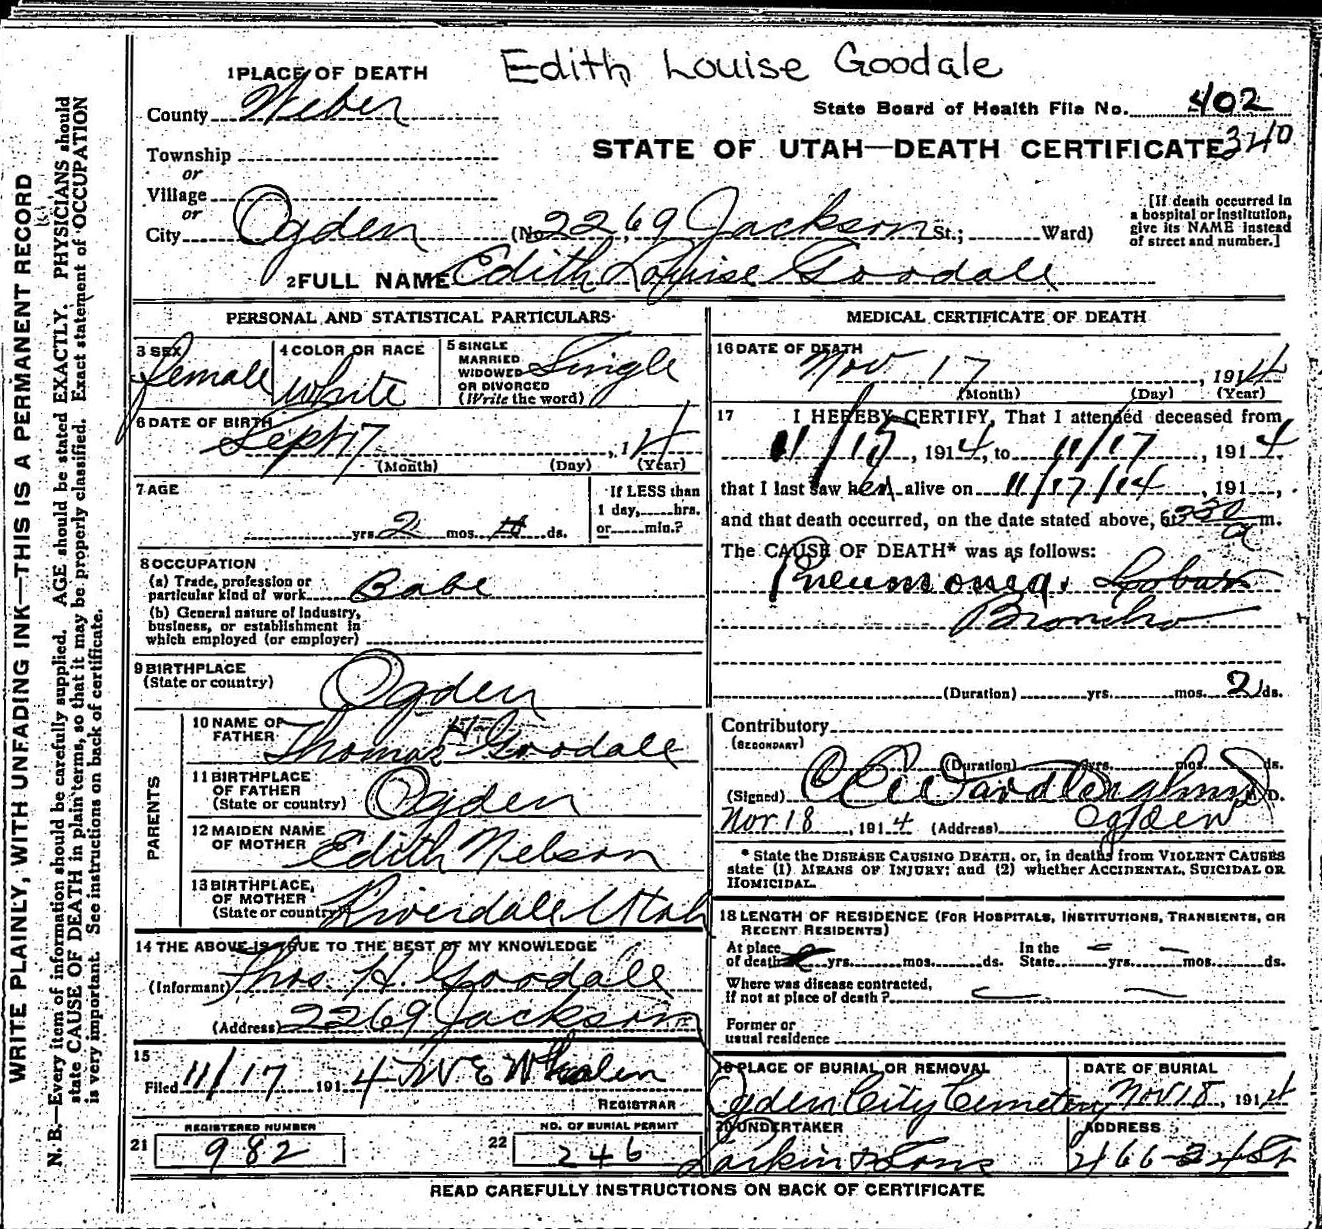 Edith Louise Goodale
1 PLACE OF DEATH
County Weber
State Board of Health File No. 402
STATE OF UTAH—DEATH CERTIFICATE 340
Township
or
Village
or
City Ogden (No. 2269 Jackson St.; Ward)
[If death occurred in a hospital or institution, give its NAME instead of street and number.]
2 FULL NAME Edith Louise Goodale
PERSONAL AND STATISTICAL PARTICULARS
3 SEX female
4 COLOR OR RACE White
5 SINGLE MARRIED WIDOWED OR DIVORCED (Write the word) Single
6 DATE OF BIRTH Sept 17, 1 14
(Month) (Day) (Year)
7 AGE
yrs. 2 mos. ds.
If LESS than 1 day, hrs. or min.?
8 OCCUPATION
(a) Trade, profession or particular kind of work Babe
(b) General nature of industry, business, or establishment in which employed (or employer)
9 BIRTHPLACE (State or country) Ogden
PARENTS
10 NAME OF FATHER Thomas H Goodale
11 BIRTHPLACE OF FATHER (State or country) Ogden
12 MAIDEN NAME OF MOTHER Edith Nelson
13 BIRTHPLACE OF MOTHER (State or country) Riverdale Utah
14 THE ABOVE IS TRUE TO THE BEST OF MY KNOWLEDGE
(Informant) Thos. H. Goodale
(Address) 2269 Jackson
15
Filed 11/17 1914 Whalen
REGISTRAR
21 REGISTERED NUMBER 982
22 NO. OF BURIAL PERMIT 246
MEDICAL CERTIFICATE OF DEATH
16 DATE OF DEATH
Nov 17, 1914
(Month) (Day) (Year)
17 I HEREBY CERTIFY, That I attended deceased from
11/15, 1914, to 11/17, 1914
that I last saw her alive on 11/17/14, 191 ,
and that death occurred, on the date stated above, at 230 a m.
The CAUSE OF DEATH* was as follows:
Pneumonia. Lobar
Broncho
(Duration) yrs. mos. 2 ds.
Contributory
(SECONDARY)
(Duration) yrs. mos. ds.
(Signed) M. D.
Nov 18, 1914 (Address) Ogden
* State the DISEASE CAUSING DEATH, or, in deaths from VIOLENT CAUSES
state (1) MEANS OF INJURY; and (2) whether ACCIDENTAL, SUICIDAL OR
HOMICIDAL.
18 LENGTH OF RESIDENCE (FOR HOSPITALS, INSTITUTIONS, TRANSIENTS, OR
RECENT RESIDENTS)
At place of death yrs. mos. ds. In the State yrs. mos. ds.
Where was disease contracted,
if not at place of death?
Former or
usual residence
19 PLACE OF BURIAL OR REMOVAL
Ogden City Cemetery
DATE OF BURIAL
Nov 18, 1914
20 UNDERTAKER
Larkin & Sons
ADDRESS
466-24 St
READ CAREFULLY INSTRUCTIONS ON BACK OF CERTIFICATE
WRITE PLAINLY, WITH UNFADING INK—THIS IS A PERMANENT RECORD
N. B.—Every item of information should be carefully supplied. AGE should be stated EXACTLY. PHYSICIANS should
state CAUSE OF DEATH in plain terms, so that it may be properly classified. Exact statement of OCCUPATION
is very important. See instructions on back of certificate.